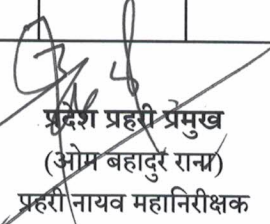 प्रदेश प्रहरी प्रमुख
(ओम बहादुर राना)
प्रहरी नायव महानिरीक्षक